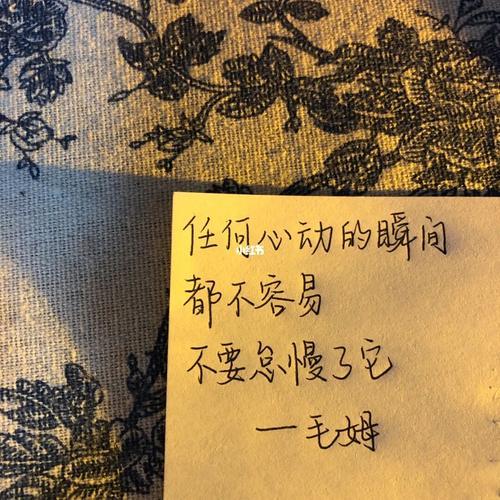 任何心动的瞬间
小红书
都不容易
不要怠慢了它
一毛姆